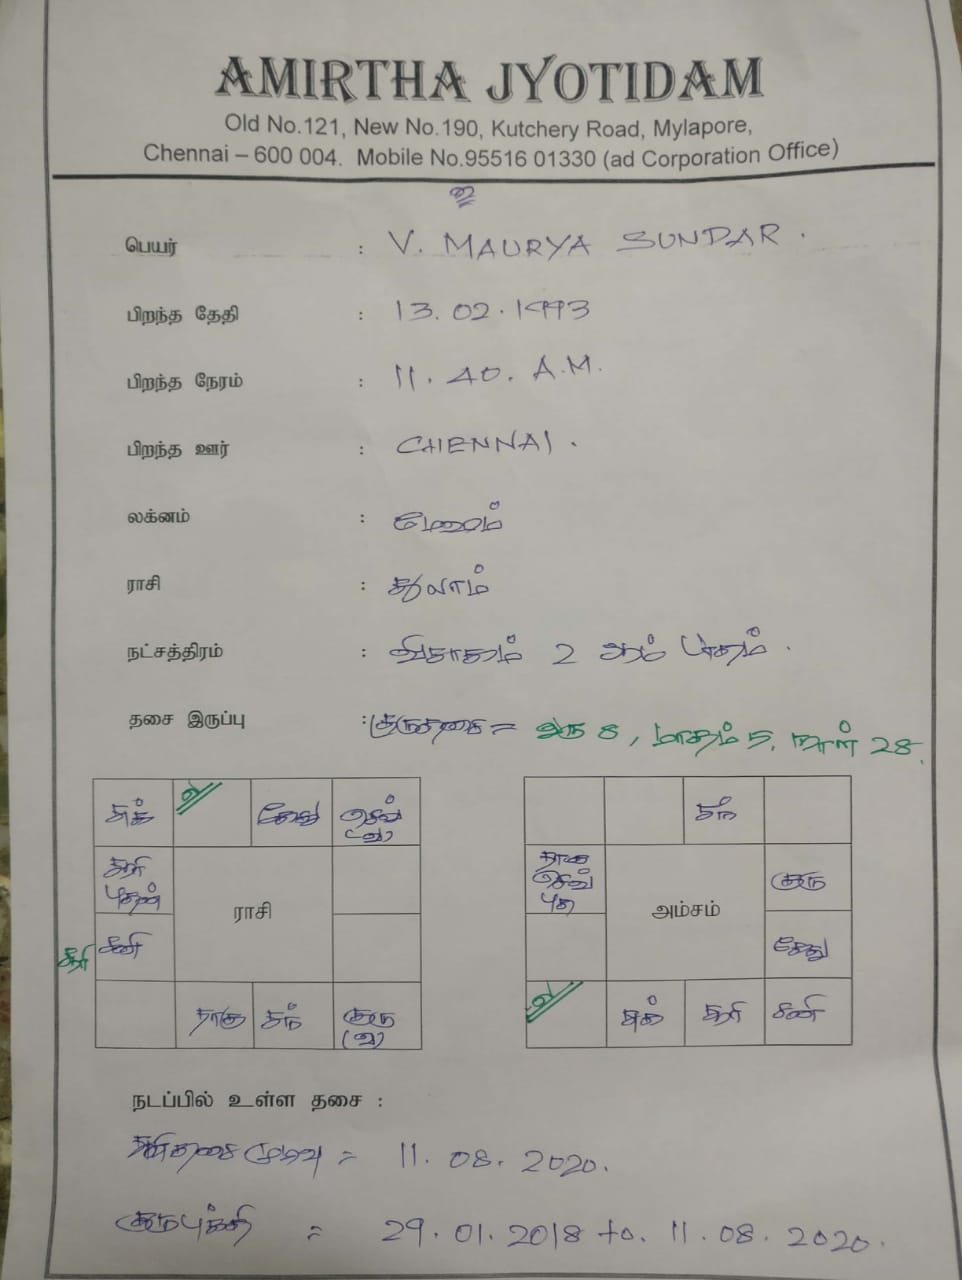 AMIRTHA JYOTIDAM
Old No.121, New No.190, Kutchery Road, Mylapore,
Chennai – 600 004. Mobile No.95516 01330 (ad Corporation Office)
உ
பெயர் : V. MAURYA SUNDAR.
பிறந்த தேதி : 13.02.1993
பிறந்த நேரம் : 11.40. A.M.
பிறந்த ஊர் : CHENNAI.
லக்னம் : மேஷம்
ராசி : துலாம்
நட்சத்திரம் : விசாகம் 2 ஆம் பாதம்.
தசை இருப்பு : குருதசை = வரு 8, மாதம் 5, நாள் 28.
சுக் ல கேது செவ் (வ)
சூரி புதன்
ராசி
சனி
ராகு சந் குரு (வ)
சந்
ராகு செவ் புத
குரு
அம்சம்
கேது
ல சுக் சூரி சனி
நடப்பில் உள்ள தசை :
சனிதசை முடிவு = 11.08.2020.
குருபுக்தி = 29.01.2018 to. 11.08.2020.